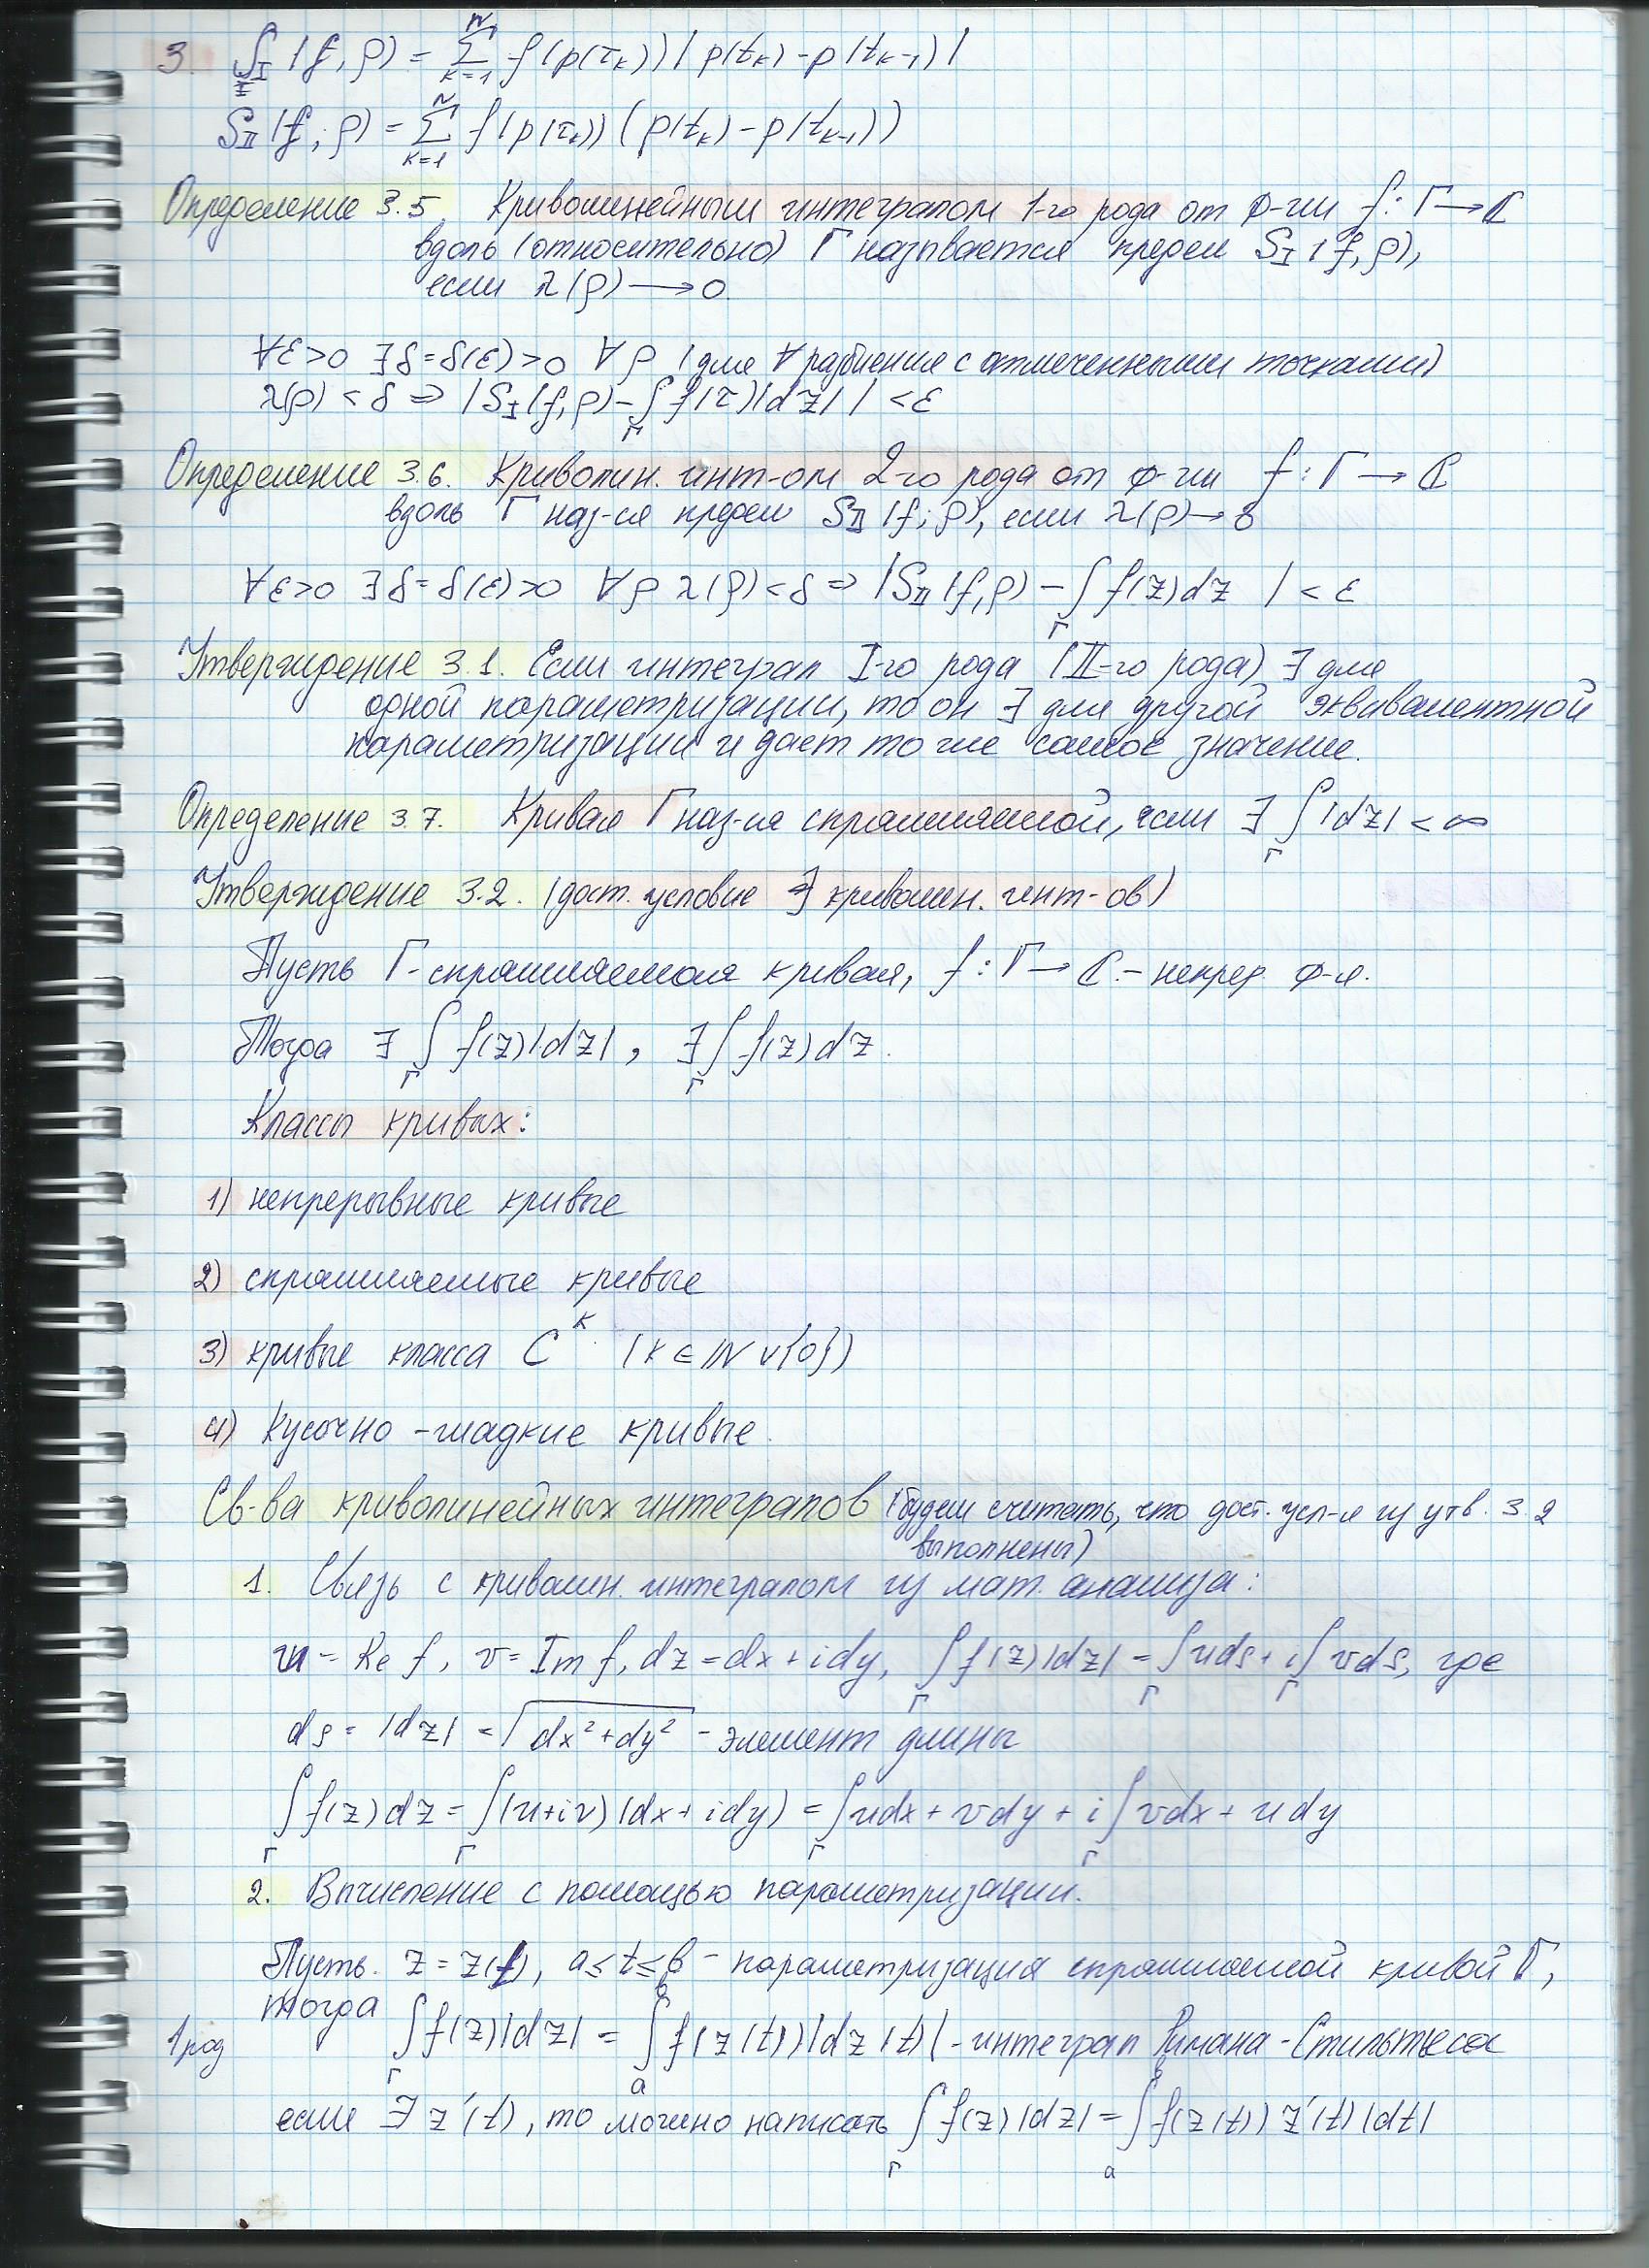 3. S_I (f, ρ) = ∑_{k=1}^{N} f(p(τ_k)) |p(t_k) - p(t_{k-1})|
S_II (f; ρ) = ∑_{k=1}^{N} f(p(τ_k)) (p(t_k) - p(t_{k-1}))
Определение 3.5. Криволинейным интегралом 1-го рода от ф-ии f: Γ → ℂ
вдоль (относительно) Γ называется предел S_I (f, ρ),
если λ(ρ) → 0.
∀ε>0 ∃δ=δ(ε)>0 ∀ρ (для ∀ разбиения с отмеченными точками)
λ(ρ) < δ ⇒ |S_I (f, ρ) - ∫_Γ f(τ)|dz| | < ε
Определение 3.6. Криволин. инт-ом 2-го рода от ф-ии f: Γ → ℂ
вдоль Γ наз-ся предел S_II (f; ρ), если λ(ρ) → 0
∀ε>0 ∃δ=δ(ε)>0 ∀ρ λ(ρ)<δ ⇒ |S_II (f, ρ) - ∫_Γ f(z)dz | < ε
Утверждение 3.1. Если интеграл I-го рода (II-го рода) ∃ для
одной параметризации, то он ∃ для другой эквивалентной
параметризации и дает то же самое значение.
Определение 3.7. Кривая Γ наз-ся спрямляемой, если ∃ ∫_Γ |dz| < ∞
Утверждение 3.2. (дост. условие ∃ криволин. инт-ов)
Пусть Γ - спрямляемая кривая, f: Γ → ℂ. - непрер. ф-я.
Тогда ∃ ∫_Γ f(z)|dz| , ∃ ∫_Γ f(z)dz.
Классы кривых:
1) непрерывные кривые
2) спрямляемые кривые
3) кривые класса C^k (k ∈ ℕ ∪ {0})
4) Кусочно - гладкие кривые.
Св-ва криволинейных интегралов (будем считать, что дост. усл-я из утв. 3.2
выполнены)
1. Связь с криволин. интегралом из мат. анализа:
u = Re f, v = Im f, dz = dx + idy, ∫_Γ f(z)|dz| = ∫_Γ uds + i∫_Γ vds, где
ds = |dz| = √(dx² + dy²) - элемент длины
∫_Γ f(z)dz = ∫_Γ (u+iv)(dx+idy) = ∫_Γ udx + vdy + i∫_Γ vdx + udy
2. Вычисление с помощью параметризации.
Пусть z = z(t), a ≤ t ≤ b - параметризация спрямляемой кривой Γ,
тогда
1 род ∫_Γ f(z)|dz| = ∫_a^b f(z(t))|dz(t)| - интеграл Римана - Стильтьеса
если ∃ z'(t), то можно написать ∫_Γ f(z)|dz| = ∫_a^b f(z(t)) z'(t)|dt|